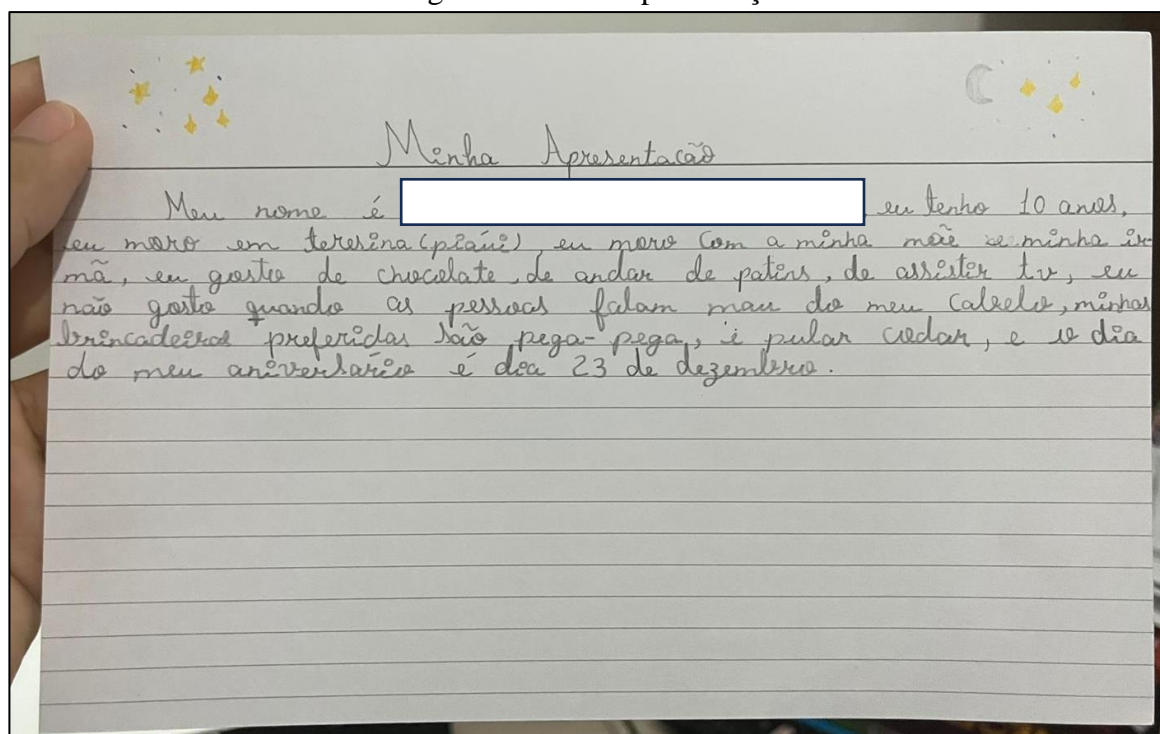 Minha Apresentacão
Meu nome é eu tenho 10 anos,
eu moro em teresina (piauí), eu moro com a minha mãe e minha ir-
mã, eu gosto de chocolate, de andar de patins, de assistir tv, eu
não gosto quando as pessoas falam mau do meu cabelo, minhas
brincadeiras preferidas são pega-pega, i pular codar, e o dia
do meu aniversario é dia 23 de dezembro.